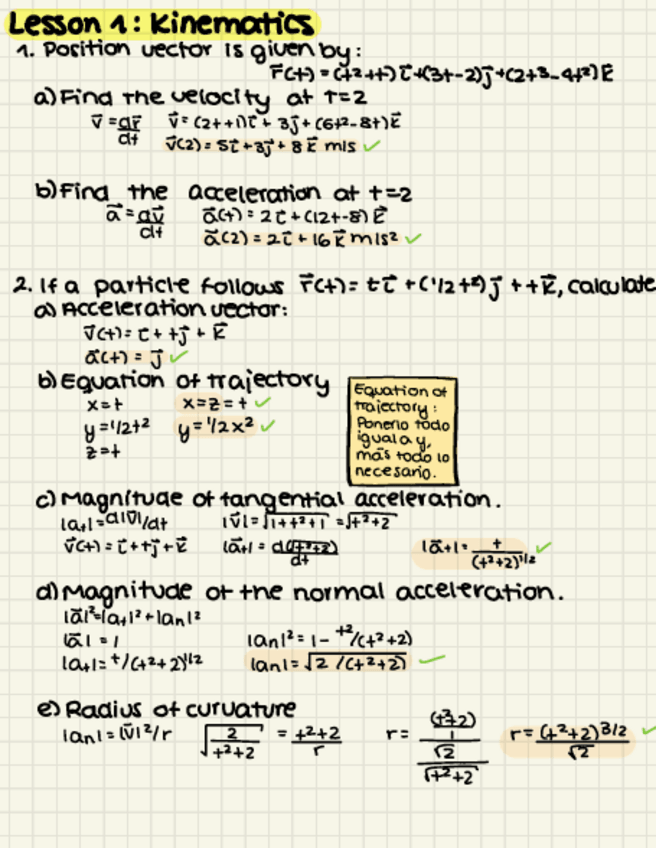 Lesson 1: Kinematics
1. Position vector is given by:
r⃗(t) = (t²+t) i⃗ + (3t-2) j⃗ + (2t³-4t²) k⃗
a) Find the velocity at t=2
v⃗ = dr⃗/dt v⃗ = (2t+1) i⃗ + 3j⃗ + (6t²-8t) k⃗
v⃗(2) = 5i⃗ + 3j⃗ + 8k⃗ m/s ✓
b) Find the acceleration at t=2
a⃗ = dv⃗/dt a⃗(t) = 2i⃗ + (12t-8) k⃗
a⃗(2) = 2i⃗ + 16k⃗ m/s² ✓
2. If a particle follows r⃗(t) = t i⃗ + (1/2 t²) j⃗ + t k⃗, calculate
a) Acceleration vector:
v⃗(t) = i⃗ + t j⃗ + k⃗
a⃗(t) = j⃗ ✓
b) Equation of trajectory
x=t x=z=t ✓
y=1/2t² y=1/2x² ✓
z=t
Equation of
trajectory:
Ponerlo todo
igual a y,
más todo lo
necesario.
c) Magnitude of tangential acceleration.
|at| = d|v⃗|/dt |v⃗| = √(1+t²+1) = √(t²+2)
v⃗(t) = i⃗ + t j⃗ + k⃗ |a⃗t| = d(√(t²+2))/dt |a⃗t| = t/(t²+2)^1/2 ✓
d) Magnitude of the normal acceleration.
|a⃗|² = |at|² + |an|²
|a⃗| = 1 |an|² = 1 - t²/(t²+2)
|at| = t/(t²+2)^1/2 |an| = √(2/(t²+2)) ✓
e) Radius of curvature
|an| = |v⃗|²/r √(2/(t²+2)) = (t²+2)/r r = ((t²+2)/1)/(√2/√(t²+2)) r = (t²+2)^3/2/√2 ✓